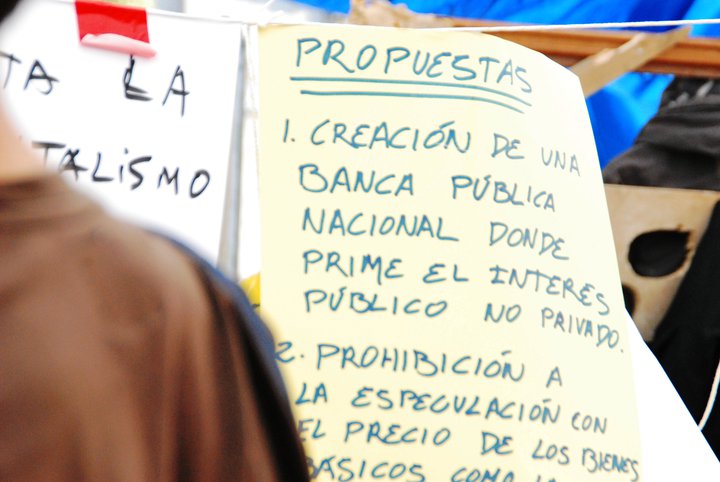 TA LA
TALISMO
PROPUESTAS
1. CREACIÓN DE UNA
BANCA PÚBLICA
NACIONAL DONDE
PRIME EL INTERES
PÚBLICO NO PRIVADO.
2. PROHIBICIÓN A
LA ESPECULACIÓN CON
EL PRECIO DE LOS BIENES
BÁSICOS COMO